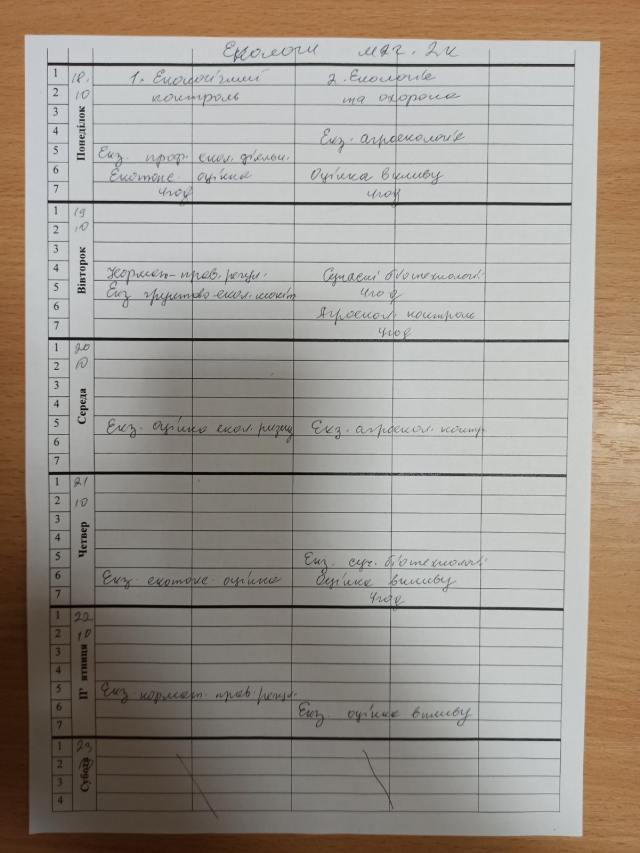 Екологи маг. 2к
1 18. 1. Екологічний 2. Екологія
2 10 контроль та охорона
3
4 Екз. агроекологія
5 Екз. проф. екол. діяльн.
6 Екотокс. оцінка Оцінка впливу
7 4год 4год
Понеділок
1 19
2 10
3
4 Нормат-прав. регул. Сучасні біотехнології
5 Екз ґрунтово-екол. моніт 4год
6 Агроекол. контроль
7 4год
Вівторок
1 20
2 10
3
4
5 Екз. оцінка екол. ризику Екз. агроекол. контр.
6
7
Середа
1 21
2 10
3
4
5 Екз. суч. біотехнології
6 Екз. екотокс. оцінка Оцінка впливу
7 4год
Четвер
1 22
2 10
3
4
5 Екз. нормат. прав. регул.
6 Екз. оцінка впливу
7
П' ятниця
1 23
2
3
4
Субота